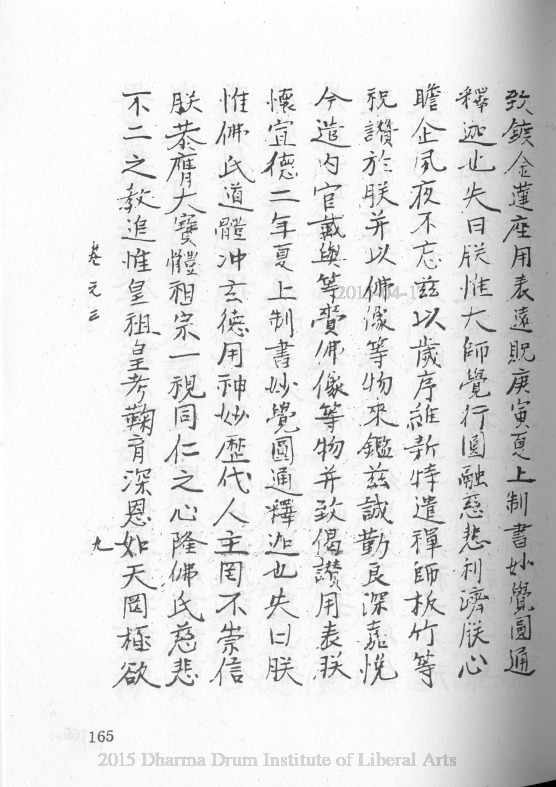 致鍍金蓮座用表遠貺庚寅夏上制書妙覺圓通
釋迦也失曰朕惟大師覺行圓融慈悲利濟朕心
瞻企夙夜不忘茲以歲序維新特遣禪師板竹等
祝讚於朕并以佛像等物來鑑茲誠勤良深嘉悅
今造內官戴與等賫佛像等物并致偈讚用表朕
懷宣德二年夏上制書妙覺圓通釋迦也失曰朕
惟佛氏道體冲玄德用神妙歷代人主罔不崇信
朕恭膺大寶體祖宗一視同仁之心隆佛氏慈悲
不二之教追惟皇祖皇考鞠育深恩如天罔極欲
卷元三
九
165
2015 Dharma Drum Institute of Liberal Arts